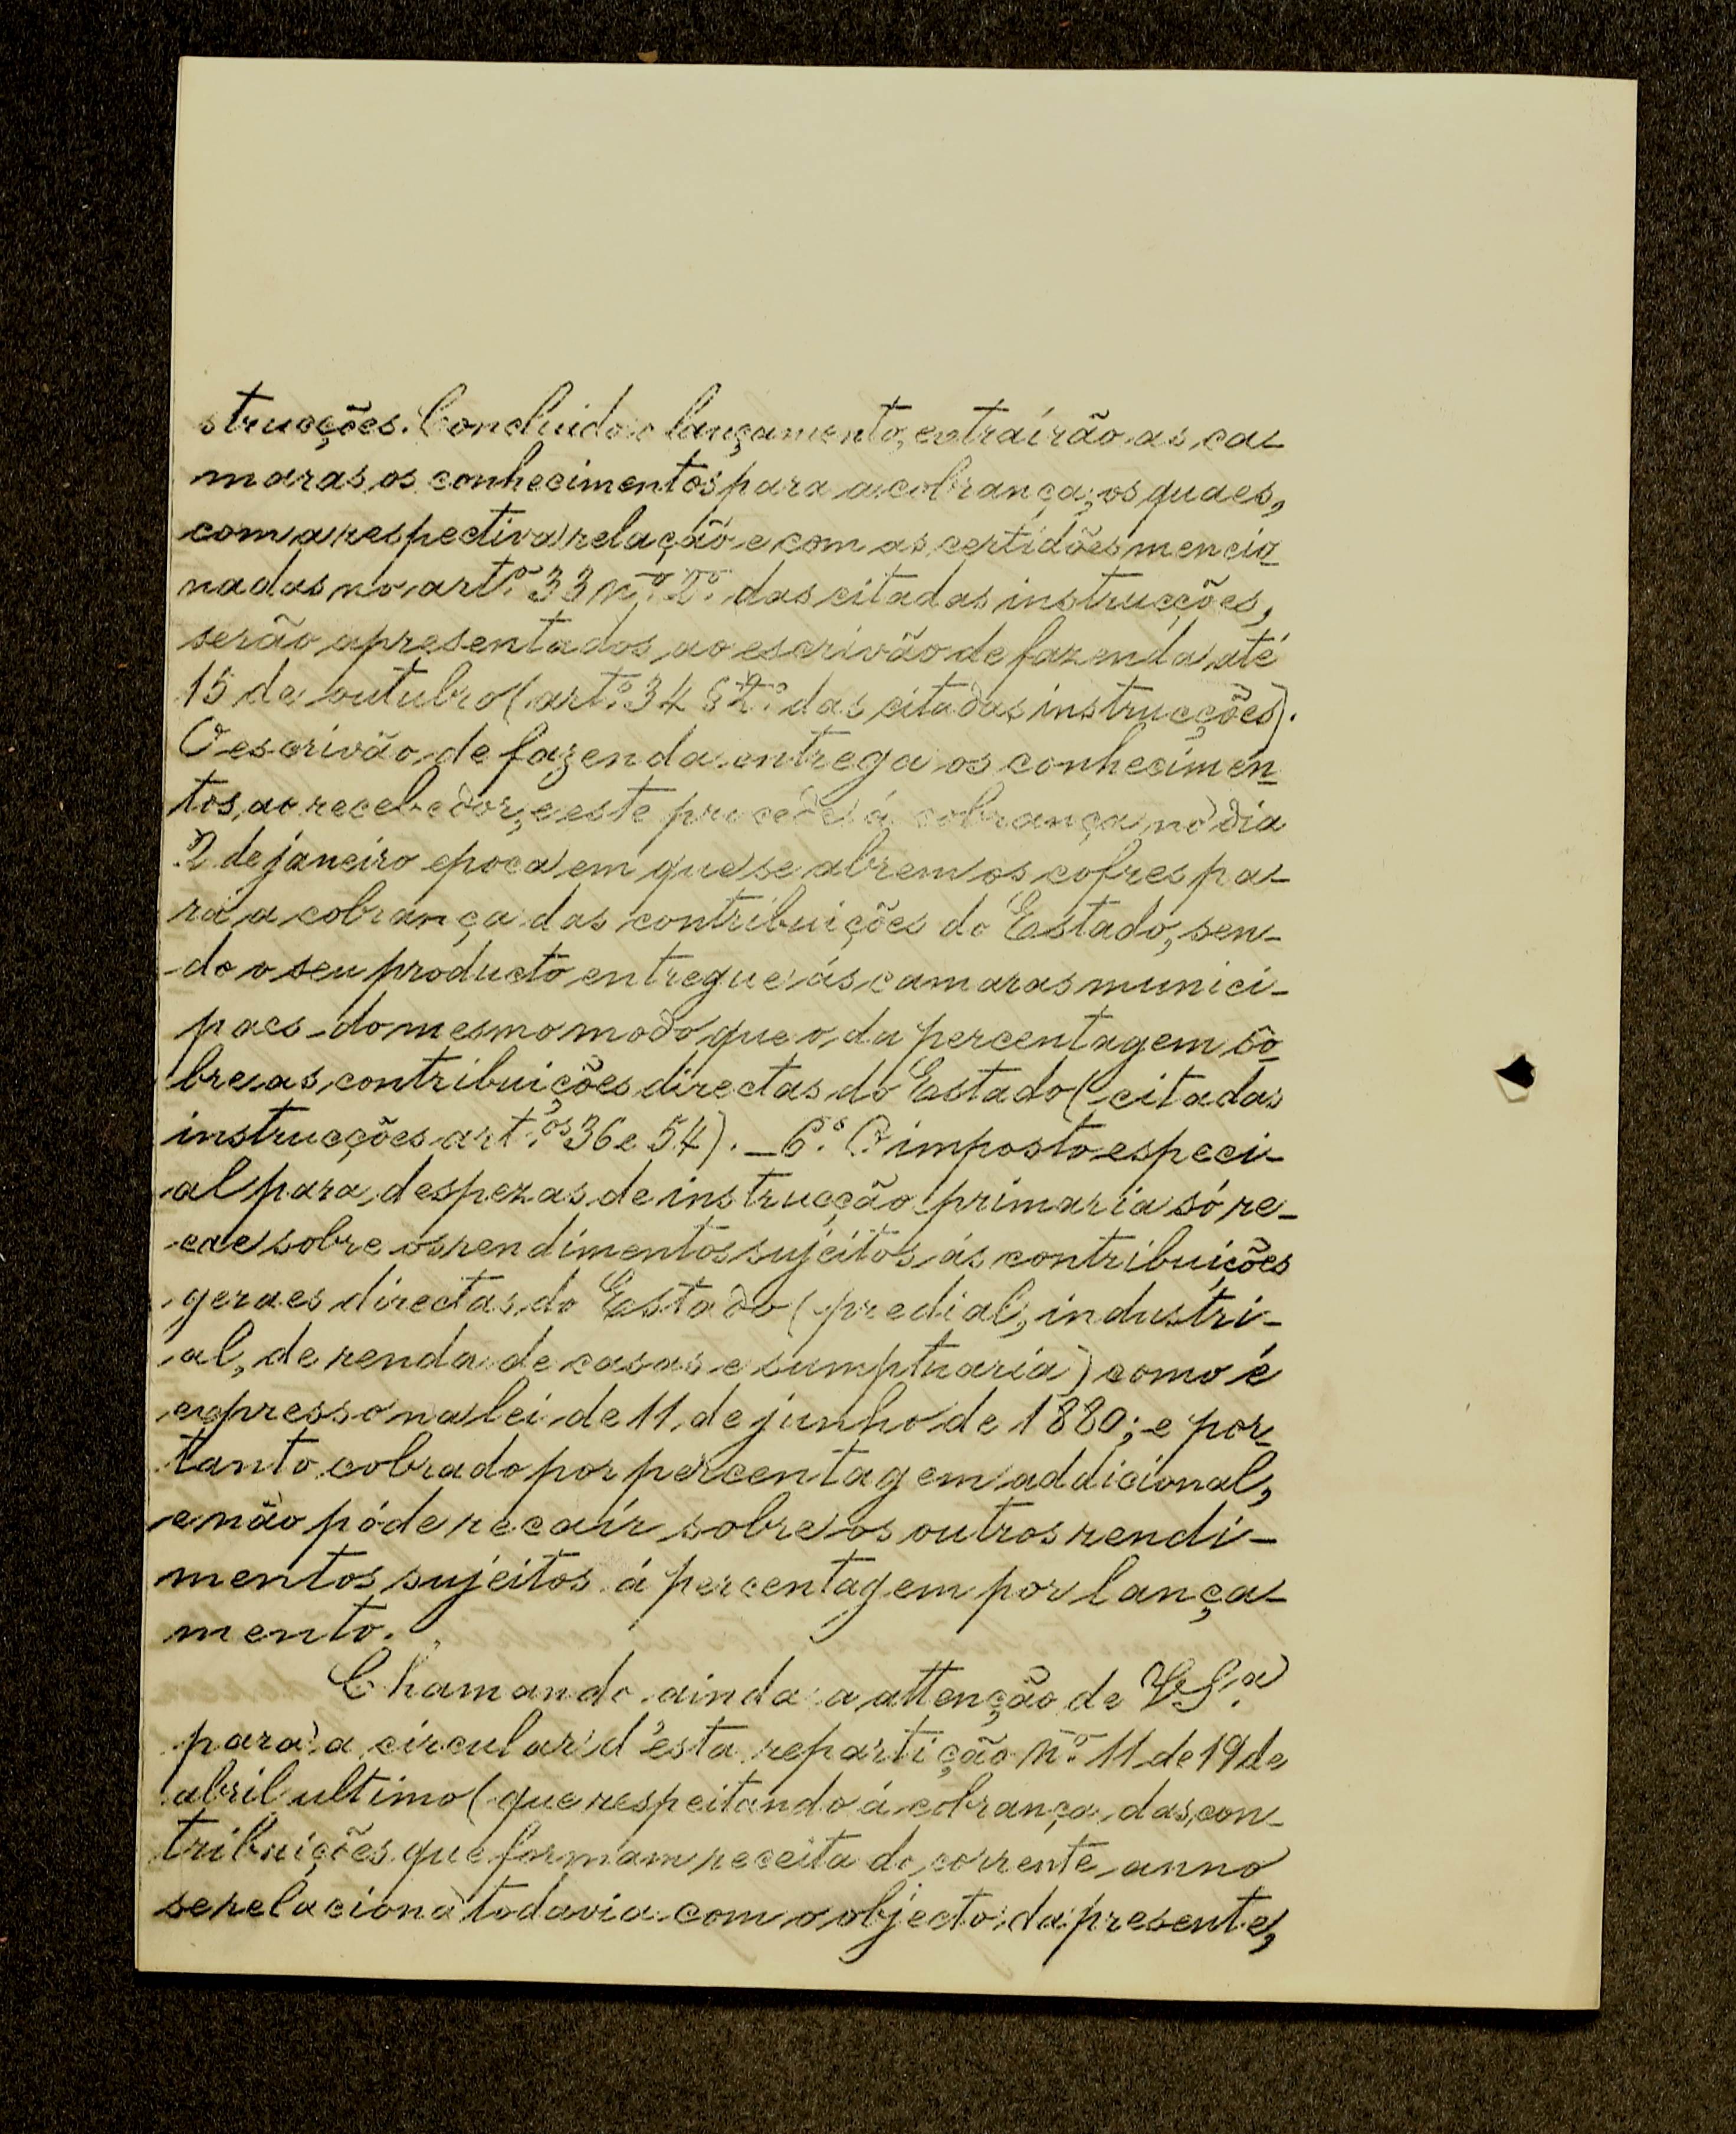 strucções. Concluido o lançamento, extraírão as ca-
maras os conhecimentos para a cobrança; os quaes,
com a respectiva relação e com as certidões mencio-
nadas no art.º 33 n.º 2.º das citadas instrucções,
serão apresentados ao escrivão de fazenda até
15 de outubro (art.º 34 § 2.º das citadas instrucções).
O escrivão de fazenda entrega os conhecimen-
tos ao recebedor, e este procede á cobrança no dia
2 de janeiro epoca em que se abrem os cofres pa-
ra a cobrança das contribuições do Estado, sen-
do o seu producto entregue ás camaras munici-
paes do mesmo modo que o da percentagem so-
bre as contribuições directas do Estado (citadas
instrucções art.os 36 e 54). _ 6.º O imposto especi-
al para despezas de instrucção primaria só re-
cae sobre os rendimentos sujeitos ás contribuições
geraes directas do Estado (predial, industri-
al, de renda de casas e sumptuaria) como é
expresso na lei de 11 de junho de 1880; e por-
tanto cobrado por percentagem addicional,
e não póde recaír sobre os outros rendi-
mentos sujeitos á percentagem por lança-
mento.
Chamando ainda a attenção de V. S.ª
para a circular d'esta repartição n.º 11 de 19 de
abril ultimo (que respeitando á cobrança das con-
tribuições que formam receita do corrente anno
se relaciona todavia com o objecto da presente,